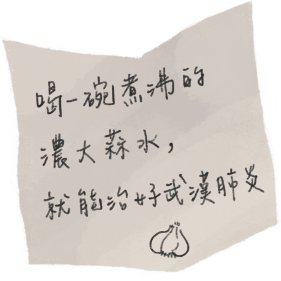 喝一碗煮沸的
濃大蒜水，
就能治好武漢肺炎